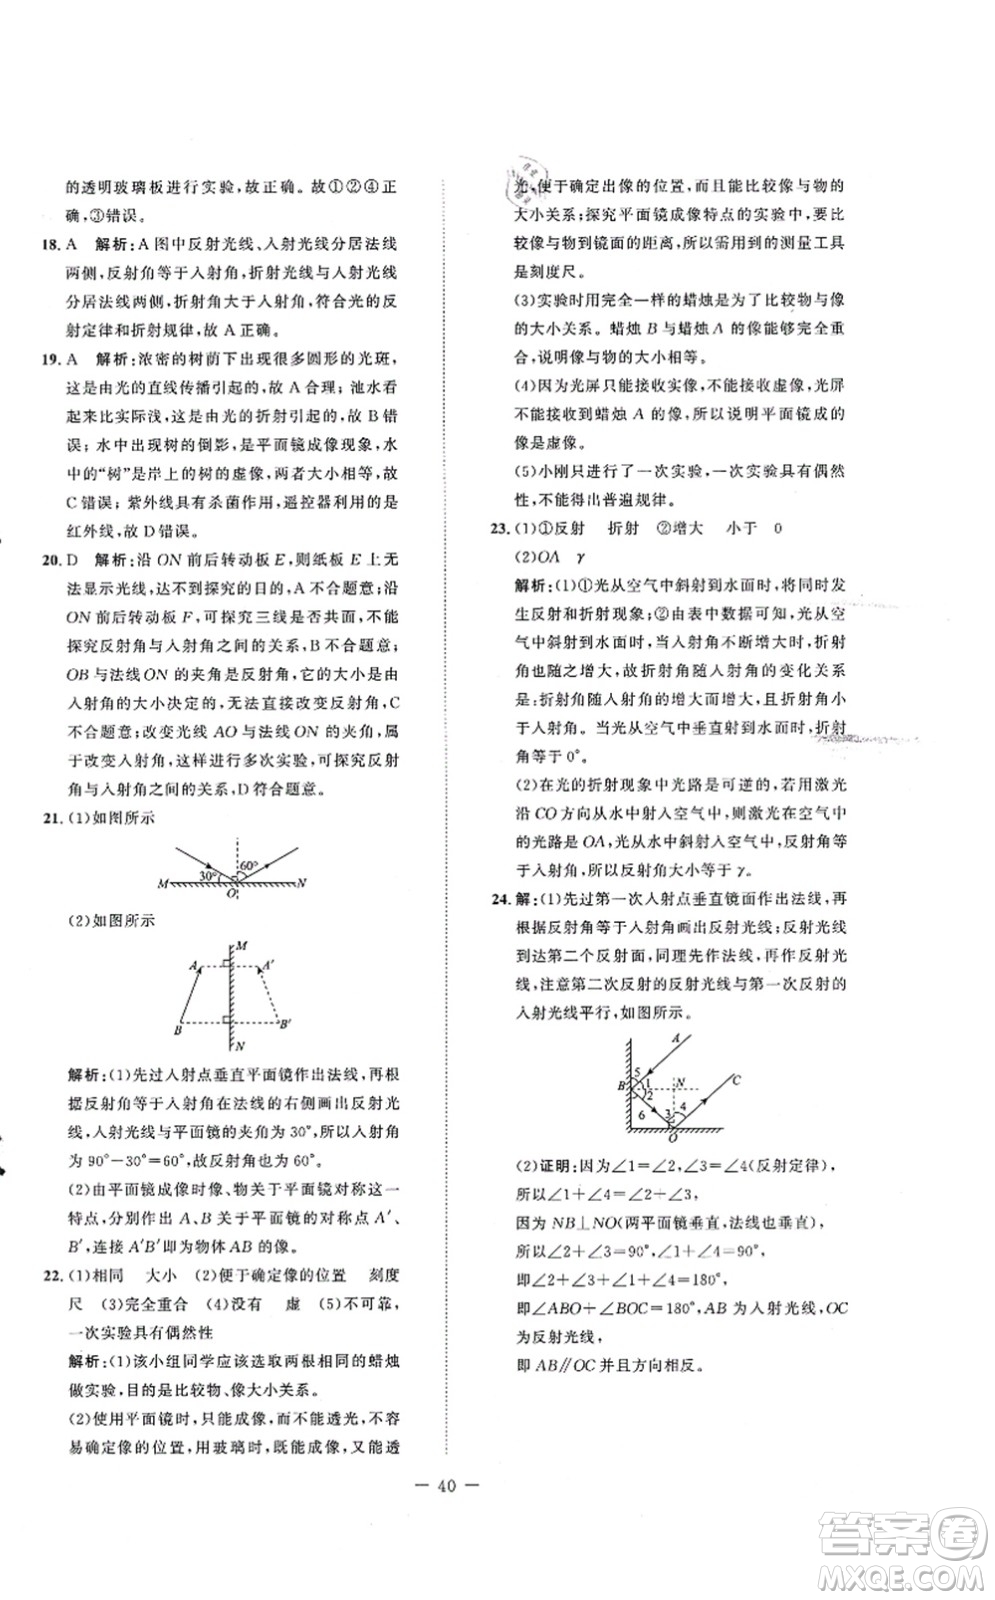 的透明玻璃板进行实验,故正确。故①②④正
确,③错误。
18. A 解析:A 图中反射光线、入射光线分居法线
两侧,反射角等于入射角,折射光线与入射光线
分居法线两侧,折射角大于入射角,符合光的反
射定律和折射规律,故 A 正确。
19. A 解析:浓密的树荫下出现很多圆形的光斑,
这是由光的直线传播引起的,故 A 合理;池水看
起来比实际浅,这是由光的折射引起的,故 B 错
误;水中出现树的倒影,是平面镜成像现象,水
中的“树”是岸上的树的虚像,两者大小相等,故
C 错误;紫外线具有杀菌作用,遥控器利用的是
红外线,故 D 错误。
20. D 解析:沿 ON 前后转动板 E,则纸板 E 上无
法显示光线,达不到探究的目的,A 不合题意;沿
ON 前后转动板 F,可探究三线是否共面,不能
探究反射角与入射角之间的关系,B 不合题意;
OB 与法线 ON 的夹角是反射角,它的大小是由
入射角的大小决定的,无法直接改变反射角,C
不合题意;改变光线 AO 与法线 ON 的夹角,即
改变入射角,这样进行多次实验,可探究反射
角与入射角之间的关系,D 符合题意。
21. (1)如图所示
30° 60°
M O N
(2)如图所示
M
A A′
B B′
N
解析:(1)先过入射点垂直平面镜作出法线,再
根据反射角等于入射角在法线的右侧画出反射
光线,入射光线与平面镜的夹角为 30°,所以入射
角为 90°−30°=60°,故反射角也为 60°。
(2)由平面镜成像时像、物关于平面镜对称这一
特点,分别作出 A、B 关于平面镜的对称点 A′、
B′,连接 A′B′即为物体 AB 的像。
22. (1)相同 大小 (2)便于确定像的位置 刻度
尺 (3)完全重合 (4)没有 虚 (5)不可靠,
一次实验具有偶然性
解析:(1)该小组同学应该选取两根相同的蜡烛
做实验,目的是比较物、像大小关系。
(2)使用平面镜时,只能成像,而不能透光,不容
易确定像的位置,用玻璃时,既能成像,又能透
光,便于确定出像的位置,而且能比较像与物的
大小关系;探究平面镜成像特点的实验中,要比
较像与物到镜面的距离,所以需用到的测量工具
是刻度尺。
(3)实验时用完全一样的蜡烛是为了比较物与像
的大小关系。蜡烛 B 与蜡烛 A 的像能够完全重
合,说明像与物的大小相等。
(4)因为光屏只能接收实像,不能接收虚像,光屏
不能接收到蜡烛 A 的像,所以说明平面镜成的
像是虚像。
(5)小刚只进行了一次实验,一次实验具有偶然
性,不能得出普遍规律。
23. (1)①反射 折射 ②增大 小于 0
(2)OA γ
解析:(1)①光从空气中斜射到水面时,将同时发
生反射和折射现象;②由表中数据可知,光从空
气中斜射到水面时,当入射角不断增大时,折射
角也随之增大,故折射角随入射角的变化关系
是:折射角随入射角的增大而增大,且折射角小
于入射角。当光从空气中垂直射到水面时,折射
角等于 0°。
(2)在光的折射现象中光路是可逆的,若用激光
沿 CO 方向从水中射入空气中,则光线在空气中
的光路是 OA,光从水中斜射入空气中,反射角等
于入射角,所以反射角大小等于 γ。
24. 解:(1)先过第一次入射点垂直镜面作出法线,再
根据反射角等于入射角画出反射光线;反射光线
到达第二个反射面,同理先作法线,再作反射光
线,注意第二次反射的反射光线与第一次反射的
入射光线平行,如图所示。
A
5 N C
B 1
2
6 3 4
O
(2)证明:因为∠1=∠2,∠3=∠4(反射定律),
所以∠1+∠4=∠2+∠3,
因为 NB⊥NO(两平面镜垂直,法线也垂直),
所以∠2+∠3=90°,∠1+∠4=90°,
所以∠1+∠2+∠3+∠4=180°,
即∠ABO+∠BOC=180°,AB 为入射光线,OC
为反射光线,
即 AB∥OC 并且方向相反。
— 40 —
答案圈
MXQE.COM